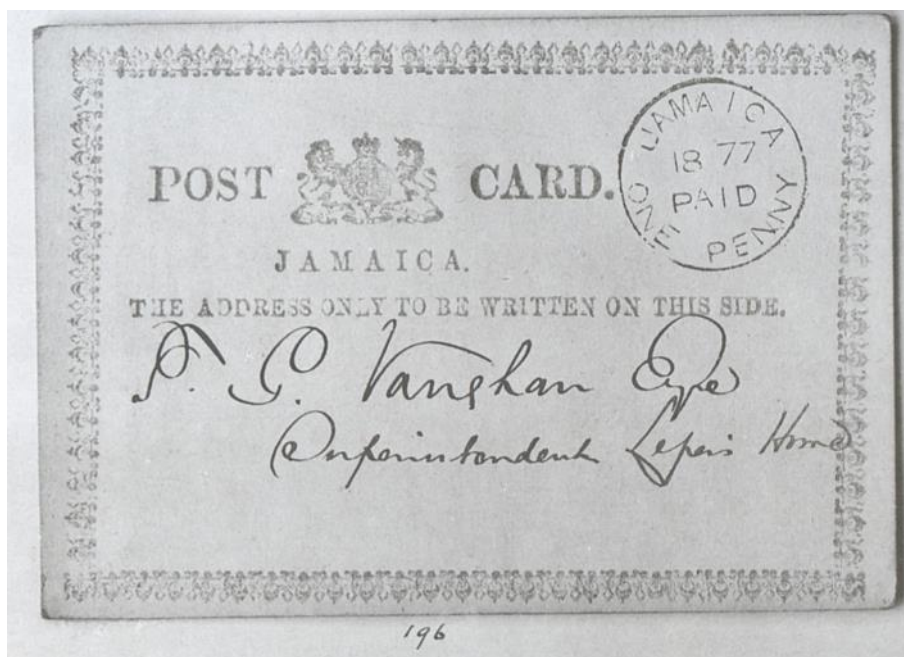 POST CARD.
JAMAICA
18 77
PAID
ONE PENNY
JAMAICA.
THE ADDRESS ONLY TO BE WRITTEN ON THIS SIDE.
Vaughan Eyre
Superintendent Lepers Home
196